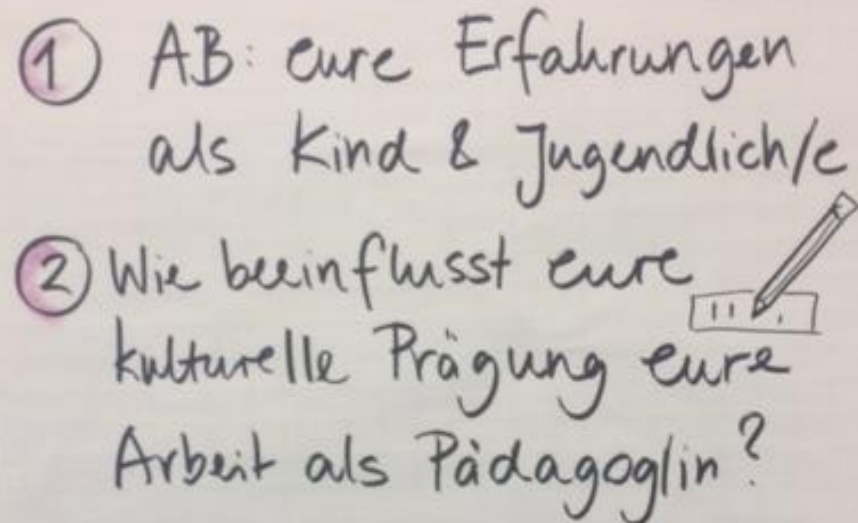 ① AB: eure Erfahrungen
als Kind & Jugendlich/e
② Wie beeinflusst eure
kulturelle Prägung eure
Arbeit als Pädagog/in?